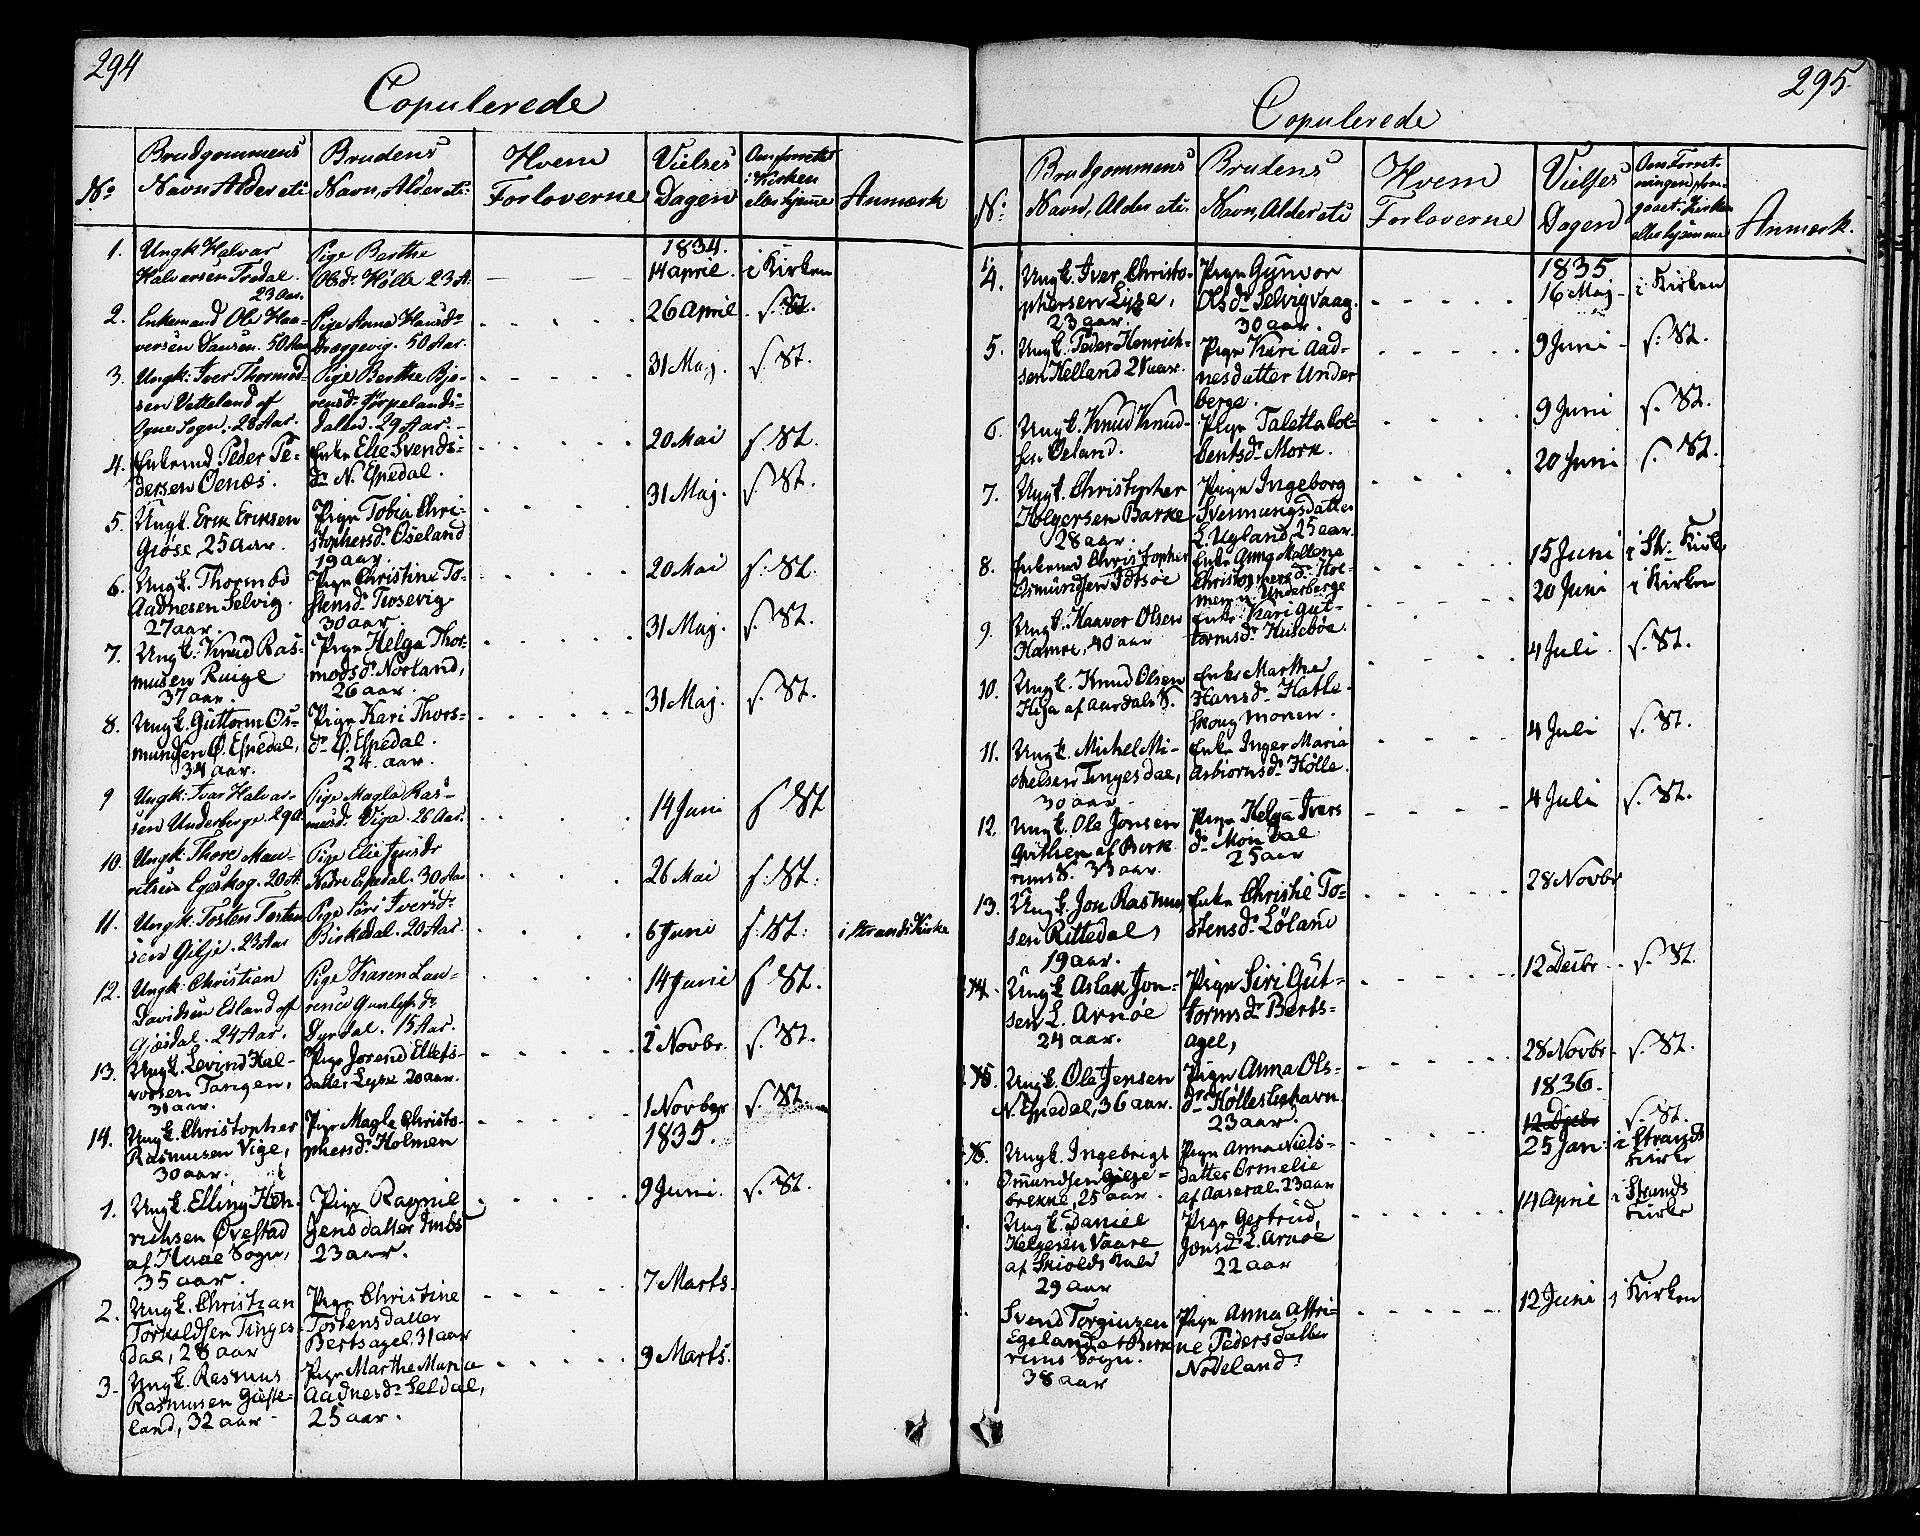 294
Copulerede
No
Brudgommens
Navn Alder etc
Brudens
Navn, Alder etc
Hvem
Forloverne
Vielses
Dagen
Om forrettet
i Kirken
eller hjemme
Anmærk
1. Ungk Halvar
Halvorsen Frödal.
23 Aar.
Pige Berthe
Olsdr Hölle 23 A.
1834.
14 april.
i Kirken
2. Enkemand Ole Haa-
versen Dausen. 50 Aar
Pige Anna Hansdr
Dræggevig. 50 Aar.
26 April.
s. St.
3. Ungk: Iver Thormod-
sen Vetteland af
Ogne Sogn. 28 Aar.
Pige Berthe Bjo-
rensdr Tørpelands-
dalen. 29 Aar.
31 Maj.
s. St.
4. Enkemd Peder Pe-
dersen Oenæs.
Enke Elie Svends-
dr N. Espedal.
20 Mai
s. St.
5. Ungk. Erik Eriksen
Giöse, 25 aar.
Pige Tobia Chri-
stophersdr Öseland
19 aar.
31 Maj.
s. St.
6. Ungk. Thormod
Aadnesen Selvig.
27 aar.
Pige Christine To-
stensdr Teosevig
30 aar.
20 Mai
s. St.
7. Ungk. Knud Ras-
musen Ruige
37 aar.
Pige Helga Thor-
modsdr Norland,
26 aar.
31 Maj.
s. St.
8. Ungk. Guttorm Os-
mundsen Ø. Espedal,
34 aar.
Pige Kari Thors-
dr Ø. Espedal.
24. aar.
31 Maj.
s. St.
9 Ungk: Ivar Halvar-
sen Underberge. 29 a.
Pige Magla Ras-
musdr Viga. 26 Aar.
14 Juni
s St
10. Ungk: Thore Mau-
ritsen Egeskog. 20 A.
Pige Elie Jensdr
Nedre Espedal. 30 Aar
26 Mai
s. St.
11. Ungk: Tosten Tosten
sen Gilje. 23 Aar
Pige Siri Iversdr
Birkedal. 20 Aar.
6 Juni
s. St.
i Strands Kirke
12. Ungk: Christian
Davidsen Edland af
Gjæsdal. 24 Aar.
Pige Karen Lau-
rence Gunleksdr
Dyrdal. 15 Aar.
14 Juni
s St.
13. Ungk. Levind Hal-
vorsen Tangen,
31 aar.
Pige Jorend Ellefs-
datter Lyse 20 aar.
2 Novbr.
s. St.
14. Ungk. Christopher
Rasmusen Vige,
30 aar.
Pige Magla Christo-
phersdr Holmen
1 Novber
s. St.
1835.
1. Ungk. Elling Hen-
richsen Øvestad
af Haae Sogn,
35 aar.
Pige Ragnil
Jensdatter Imbs
23 aar.
9 Juni.
s. St.
2. Ungk. Christian
Torkeldsen Tinges-
dal, 28 aar
Pige Christine
Tostensdatter
Bertsagel, 31 aar
7 Marts.
3. Ungk. Rasmus
Rasmusen Giefte-
land, 32 aar
Pige Marthe Maria
Aadnesdr Seldal,
25 aar.
9 Marts.
295.
Copulerede
No
Brudgommens
Navn, Alder etc.
Brudens
Navn, Alder etc
Hvem
Forloverne
Vielses
Dagen
Om Forret-
ningen fore-
gaaet i Kirken
eller hjemme
Anmærk.
4. Ungk. Iver Christo-
phersen Lyse,
23 aar.
Pige Gunvor
Olsdr Selvigvaag.
30 aar.
1835
16 Maj
i Kirken
5. Ungk. Peder Henrich-
sen Helland 21 aar.
Pige Kari Aad-
nesdatter Under
berge.
9 Juni
s. St.
6. Ungk. Knud Knud-
sen Øeland.
Pige Taletta Kol-
bentsdr Mork.
9 Juni
s. St.
7. Ungk. Christopher
Holgersen Barke
28 aar.
Pige Ingeborg
Svennungsdatter
L. Ugland, 25 aar.
20 Juni
s. St.
8. Enkemd Christopher
Osmundsen Idtsøe
Enke Anna Mallene
Christophersdr Hol-
men u. Underberge
15 Juni
i St: Kirke
9. Ungk. Haaver Olsen
Hamre, 40 aar
Enke Kari Gut-
tormsdr Husebøe.
20 Juni
i Kirken
10. Ungk. Knud Olsen
Hia af Aardals S.
Enke Marthe
Hansdr Hatle
Skougmonen.
4 Juli
s. St.
11. Ungk. Michel Mi-
chelsen Tingesdal,
30 aar
Enke Inger Maria
Asbiornsdr Hølle
4 Juli
s. St.
12. Ungk. Ole Jonsen
Grithen af Berk
rems S. 33 aar.
Pige Helga Ivers
dr Mondal
25 aar
4 Juli
s. St.
13. Ungk. Jon Rasmus-
sen Rittedal,
19 aar.
Enke Christie To-
stensdr Løland
28 Novbr
14. Ungk Aslak Jon-
sen L. Arnøe
24 aar.
Pige Siri Gut-
tormsdr Berts-
agel,
12 Decbr
s. St.
15. Ungk. Ole Jensen
N. Espedal, 36 aar.
Pige Anna Ols-
dr Hølleslihavn
23 aar.
28 Novbr
s. St.
1836.
16. Ungk. Ingebrigt
Ommundsen Gilje-
brekke, 25 aar.
Pige Anna Niels-
datter Ormelie
af Aaseral, 23 aar
12 Decbr
s. St.
25 Jan:
i Strands
Kirke
Ungk. Daniel
Helgesen Vaare
af Skiolds Kald
29 aar
Pige Gertrud,
Jonsdr L. Arnøe
22 aar
14 April
i Strands
Kirke
Svend Torginsen
Egeland af Berk
rems Sogn.
38 aar
Pige Anna Attri-
ne Pedersdatter
Nodeland.
12 Juni
i Kirken